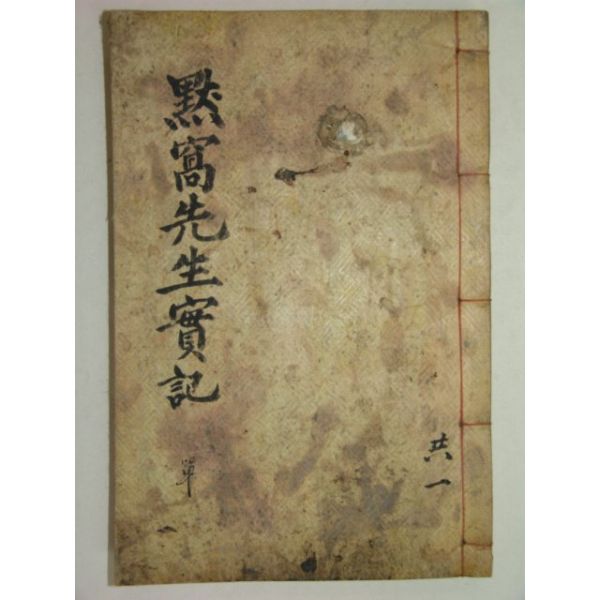 共一
黙窩先生實記
單